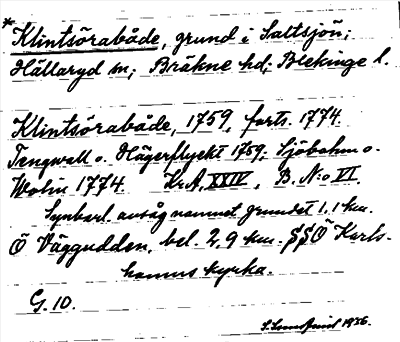 *Klintsörabåde, grund i Saltsjön;
Hällaryd sn; Bräkne hd; Blekinge l.
Klintsörabåde, 1759, forts. 1774.
Tengwall o. Hägerflyckt 1759; Sjöbohm o.
Wolin 1774. Kr.A, XXIV, B. N:o VI.
Synbarl. avsåg namnet grundet 1,1 km.
Ö Väggudden, bel. 2,9 km. SSÖ Karls-
hamns kyrka.
G. 10.
1936.